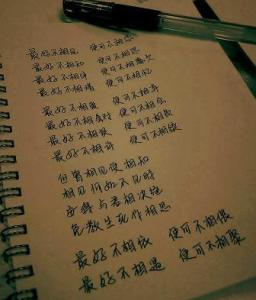 最好不相见 便可不相恋
最好不相知 便可不相思
最好不相伴 便可不相欠
最好不相惜 便可不相忆
最好不相爱 便可不相弃
最好不相对 便可不相会
最好不相误 便可不相负
最好不相许 便可不相续
但曾相见便相知
相见何如不见时
安得与君相决绝
免教生死作相思
最好不相依 便可不相偎
最好不相遇 便可不相聚